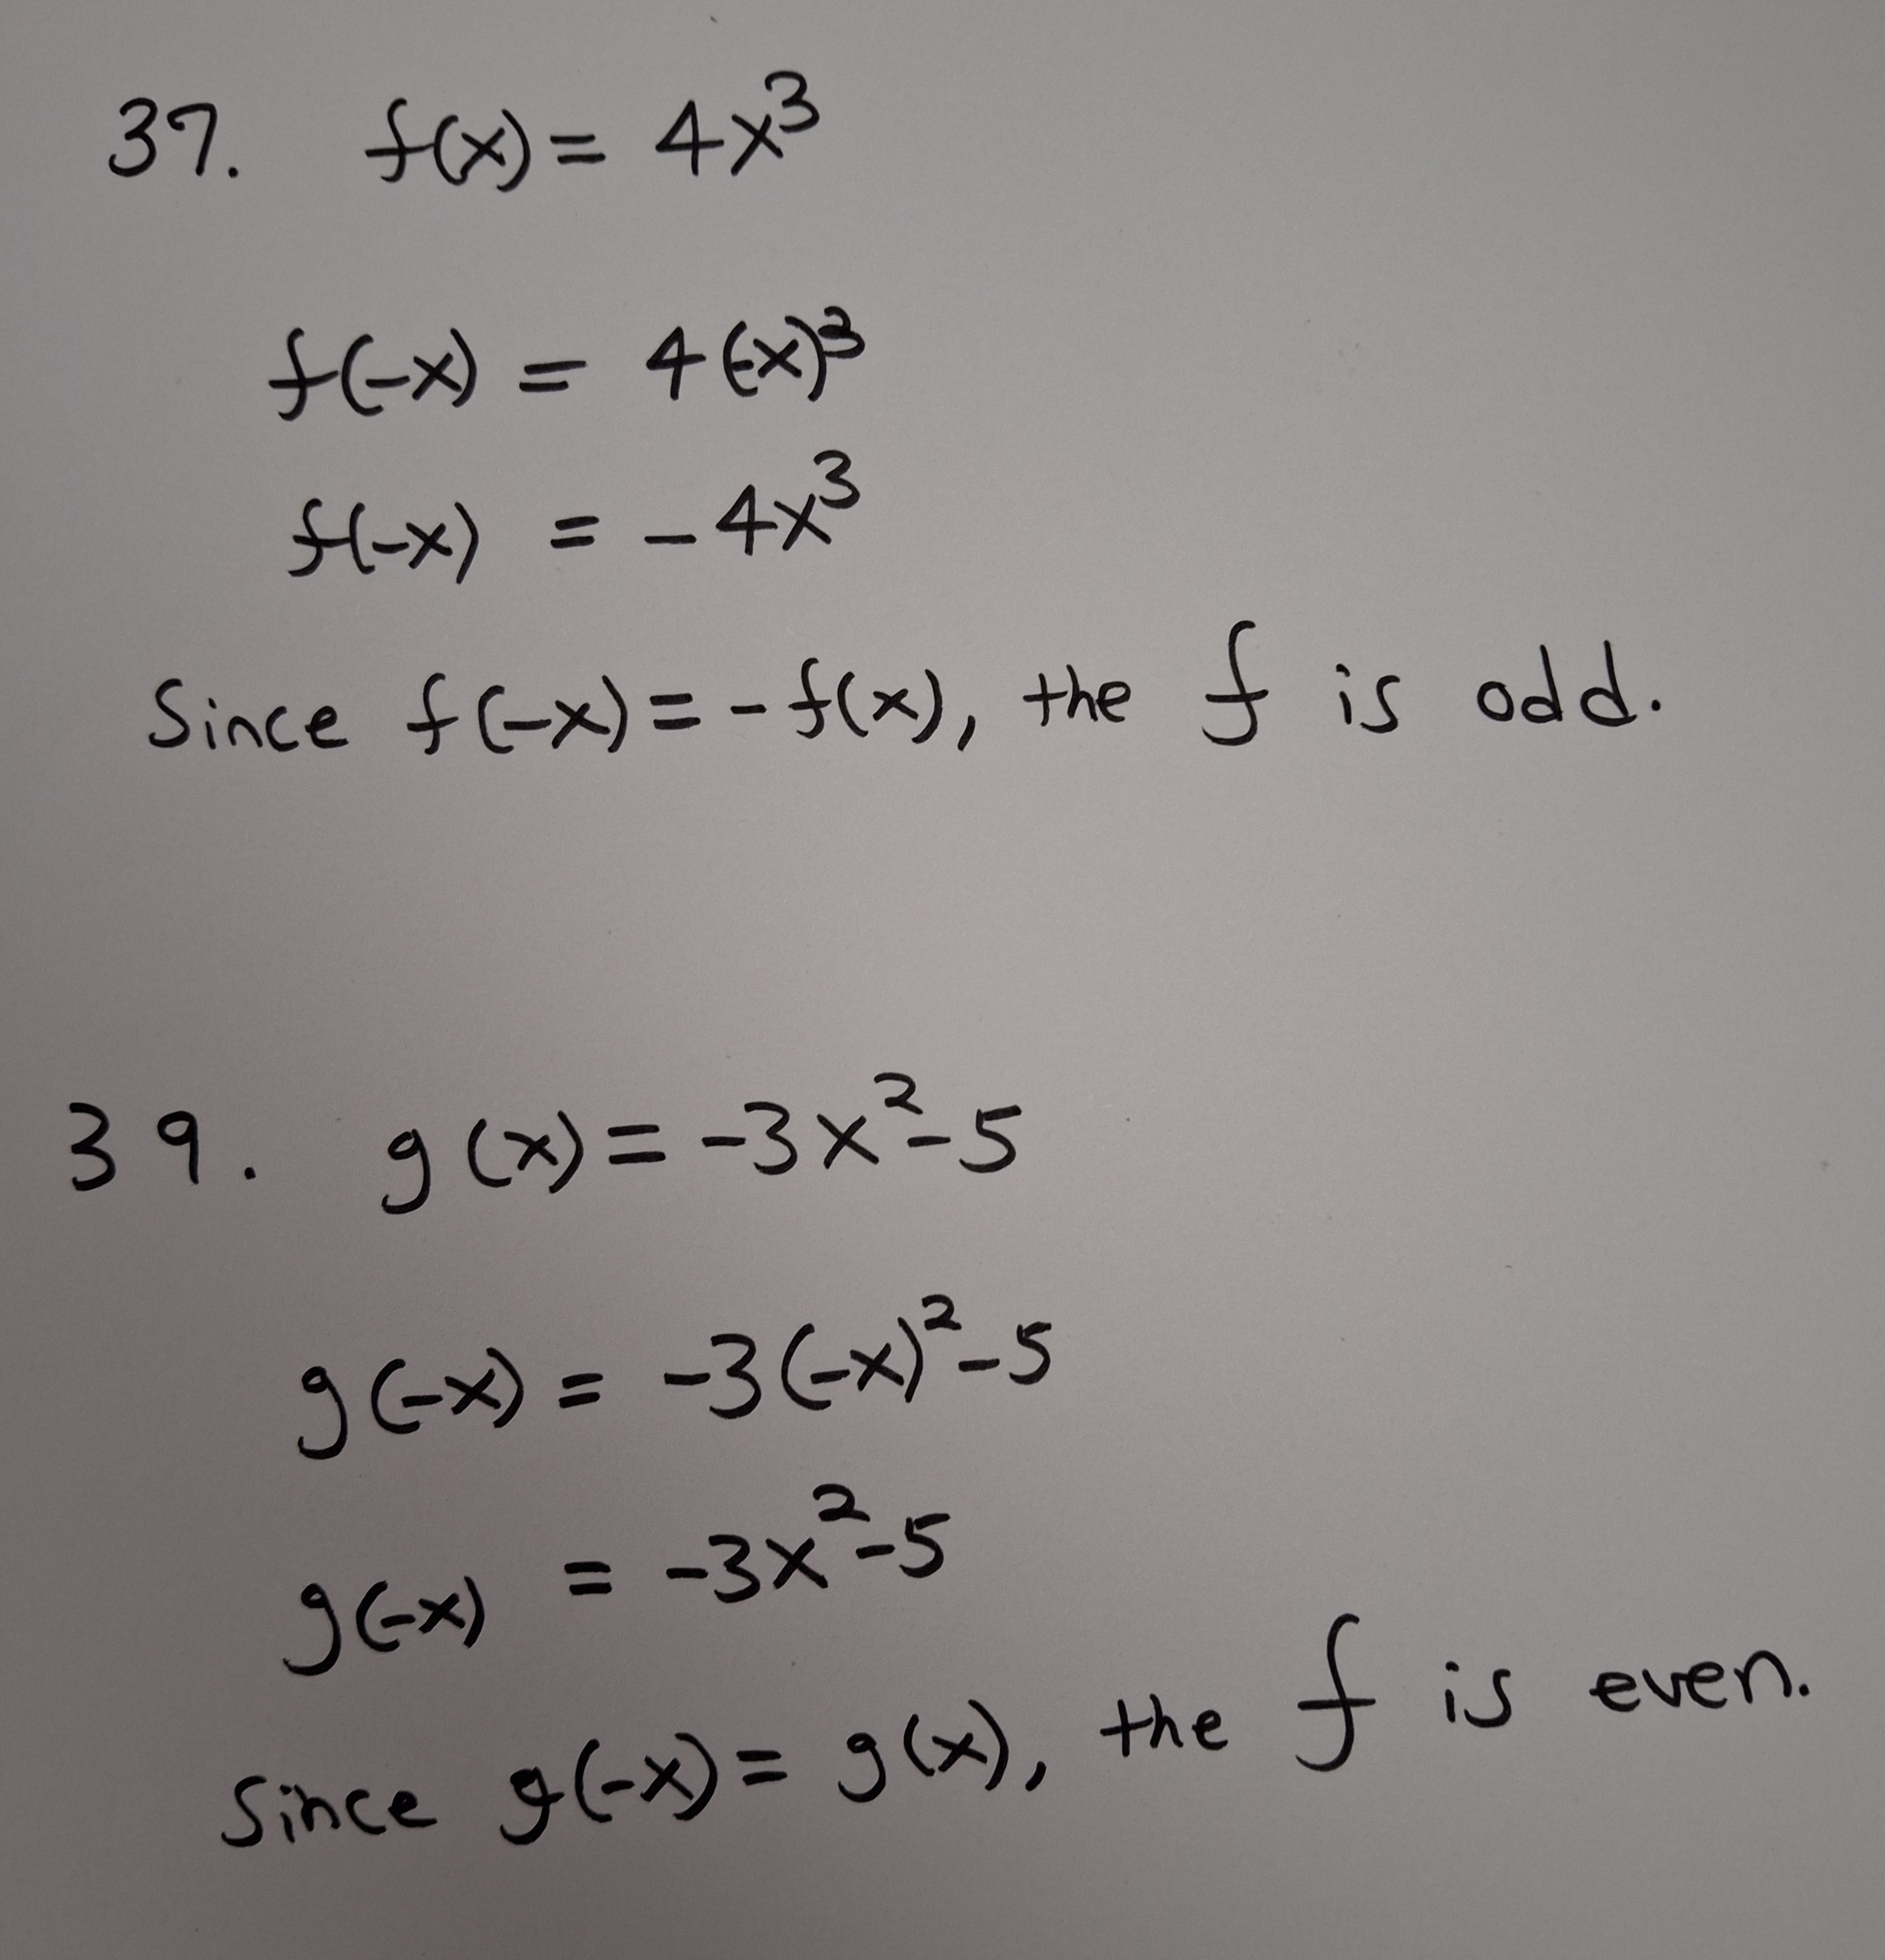 37. f(x) = 4x³
f(-x) = 4(-x)³
f(-x) = -4x³
Since f(-x) = -f(x), the f is odd.
39. g(x) = -3x²-5
g(-x) = -3(-x)²-5
g(-x) = -3x²-5
Since g(-x) = g(x), the f is even.